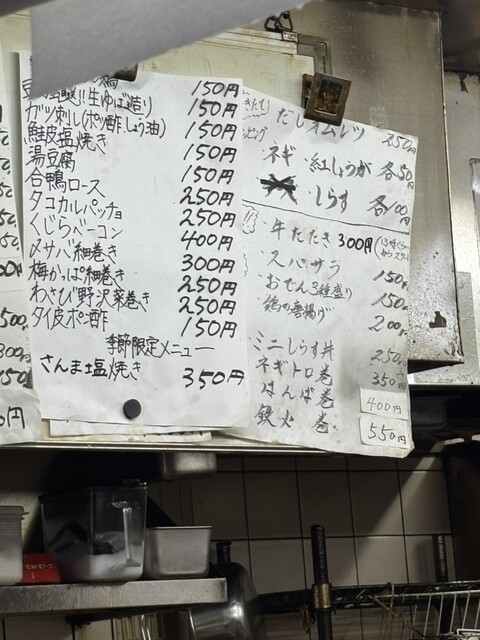 150円
!!生ゆば造り) 150円
ガツ刺し(ポン酢,しょう油) 150円
鮭皮塩焼き 150円
湯豆腐 150円
合鴨ロース 250円
タコカルパッチョ 250円
くじらベーコン 400円
〆サバ細巻き 300円
梅かっぱ細巻き 250円
わさび野沢菜巻き 250円
タイ皮ポン酢 150円
季節限定メニュー
さんま塩焼き 350円
だしオムレツ 250円
ネギ 紅しょうが 各50円
しらす 各100円
牛たたき 300円
スパサラ 150円
おでん3種盛り 150円
鶏の唐揚げ 200円
ミニしらす丼 250円
ネギトロ巻 350円
はんぱ巻 400円
鉄火巻 550円